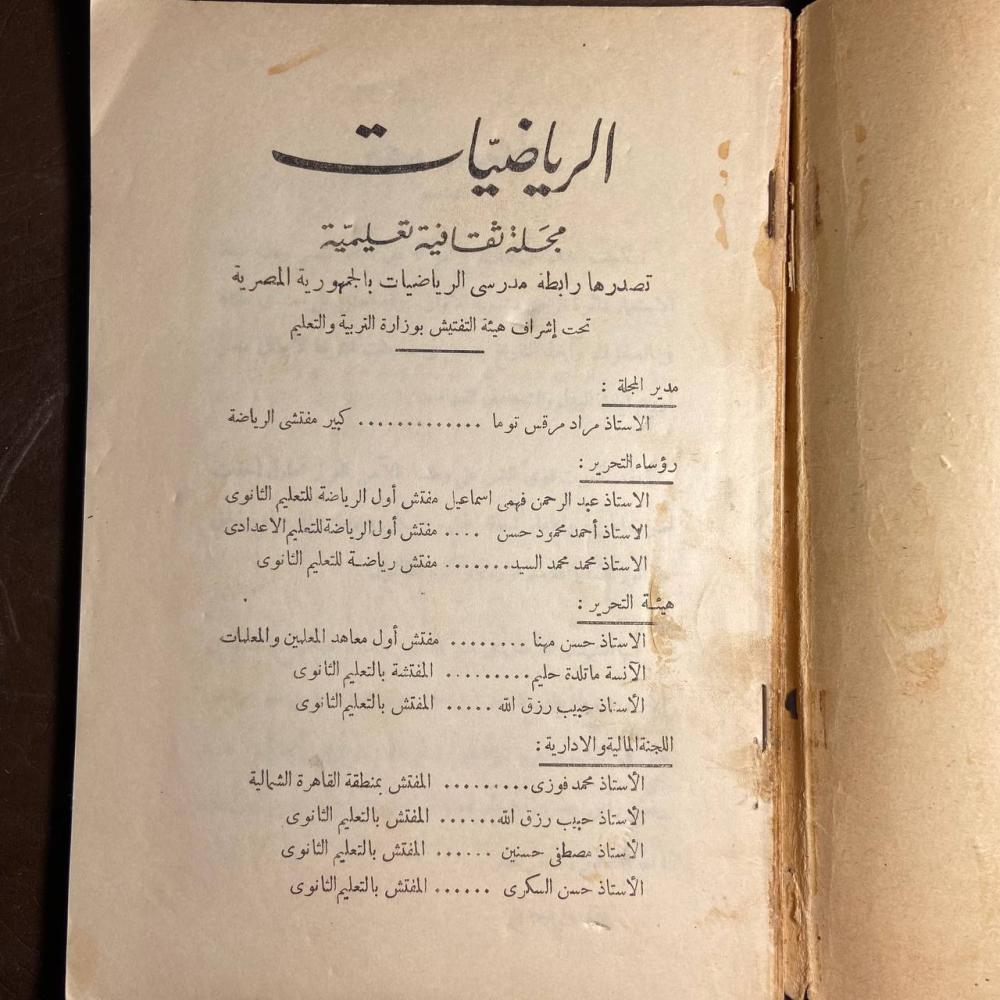 الرياضيّات
مجَلة ثقافية تعليميّة
تصدرها رابطة مدرسى الرياضيات بالجمهورية المصرية
تحت إشراف هيئة التفتيش بوزارة التربية والتعليم
مدير المجلة :
الاستاذ مراد مرقس توما ............. كبير مفتشى الرياضة
رؤساء التحرير :
الاستاذ عبد الرحمن فهمى اسماعيل مفتش أول الرياضة للتعليم الثانوى
الاستاذ أحمد محمود حسن .... مفتش أول الرياضة للتعليم الاعدادى
الاستاذ محمد محمد السيد....... مفتش رياضة للتعليم الثانوى
هيئة التحرير :
الاستاذ حسن مهنا ........ مفتش أول معاهد المعلمين والمعلمات
الآنسة ماتلدة حليم......... المفتشة بالتعليم الثانوى
الأستاذ حبيب رزق الله ..... المفتش بالتعليم الثانوى
اللجنة المالية والادارية :
الأستاذ محمد فوزى......... المفتش بمنطقة القاهرة الشمالية
الأستاذ حبيب رزق الله...... المفتش بالتعليم الثانوى
الأستاذ مصطفى حسنين ...... المفتش بالتعليم الثانوى
الأستاذ حسن السكرى ...... المفتش بالتعليم الثانوى